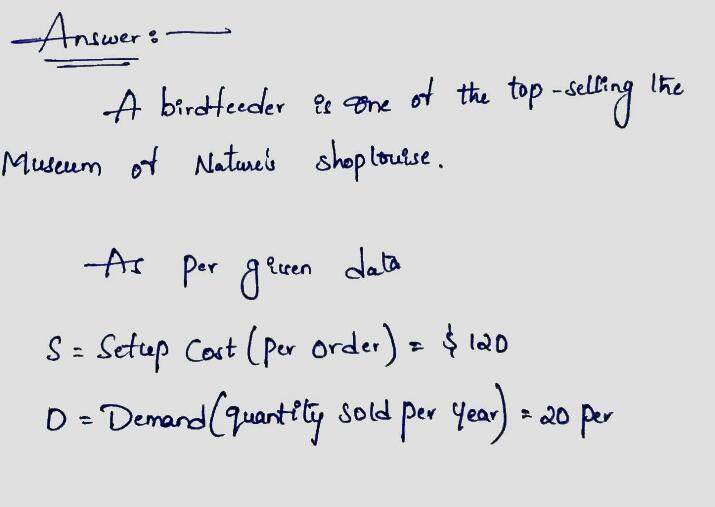 Answer :-
A birdfeeder is one of the top-selling the
Museum of Nature's shop louise.
As per given data
S = Setup Cost (per order) = $ 120
D = Demand (quantity sold per year) = 20 per